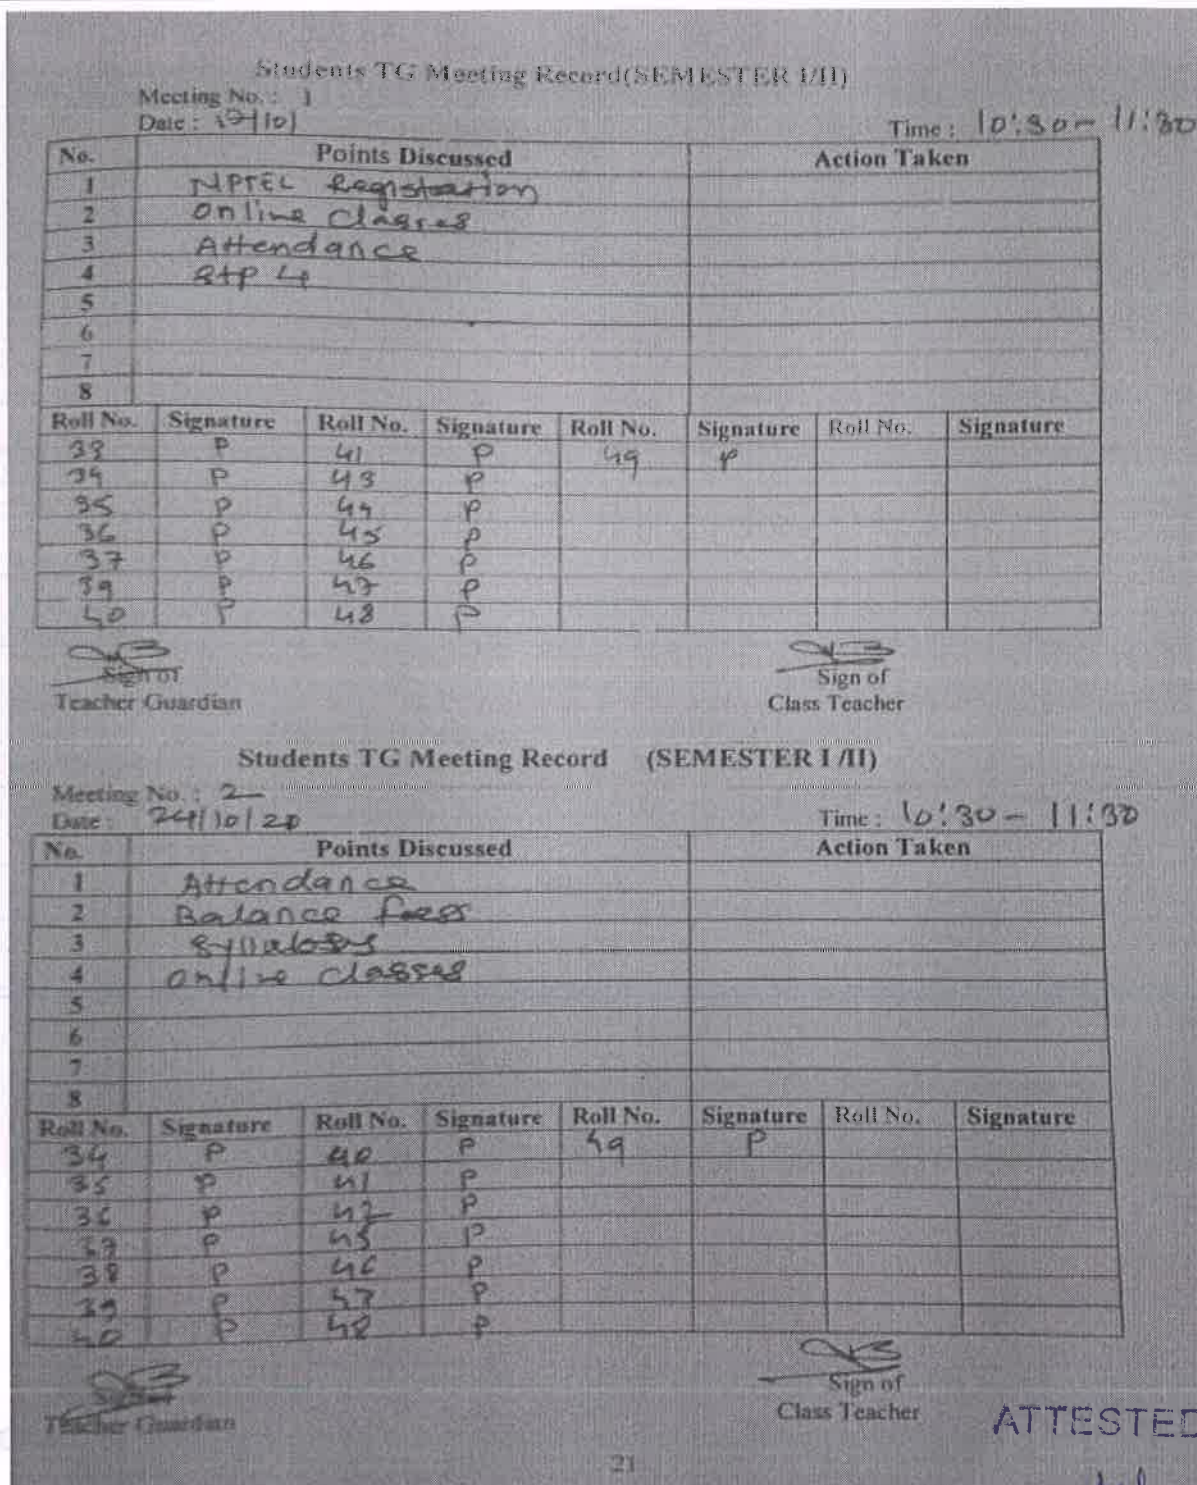 Students TG Meeting Record(SEMESTER I/II)
Meeting No. : 1
Date :
Time : 10:30 - 11:30
No. Points Discussed Action Taken
1 NPTEL Registration
2 Online Classes
3 Attendance
4
5
6
7
8
Roll No. Signature Roll No. Signature Roll No. Signature Roll No. Signature
P 41 P 49 P
34 P 43 P
35 P 44 P
36 P 45 P
37 P 46 P
39 P 47 P
40 P 48 P
Sign of Sign of
Teacher Guardian Class Teacher
Students TG Meeting Record (SEMESTER I /II)
Meeting No. : 2
Date : 24/10/20 Time : 10:30 - 11:30
No. Points Discussed Action Taken
1 Attendance
2 Balance fees
3
4 Online classes
5
6
7
8
Roll No. Signature Roll No. Signature Roll No. Signature Roll No. Signature
34 P 40 P 49 P
35 P 41 P
36 P 42 P
37 P 45 P
38 P 46 P
39 P 47 P
40 P 48 P
Sign of
Teacher Guardian Class Teacher
ATTESTED
21